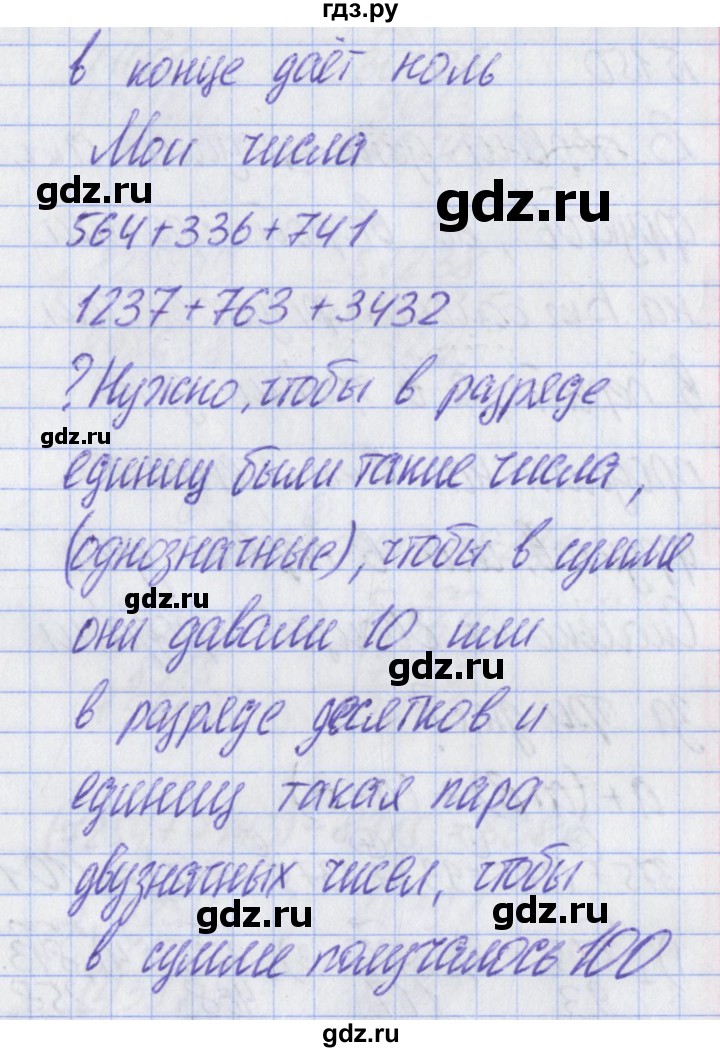 гдз.ру
в конце даёт ноль
Мои числа
gdz.ru
gdz.ru
564+336+741
1237+763+3432
? Нужно, чтобы в разряде
gdz.ru
единиц были такие числа,
(однозначные), чтобы в сумме
gdz.ru
они давали 10 или
gdz.ru
в разряде десятков и
единиц такая пара
двузначных чисел, чтобы
gdz.ru
gdz.ru
в сумме получалось 100
gdz.ru